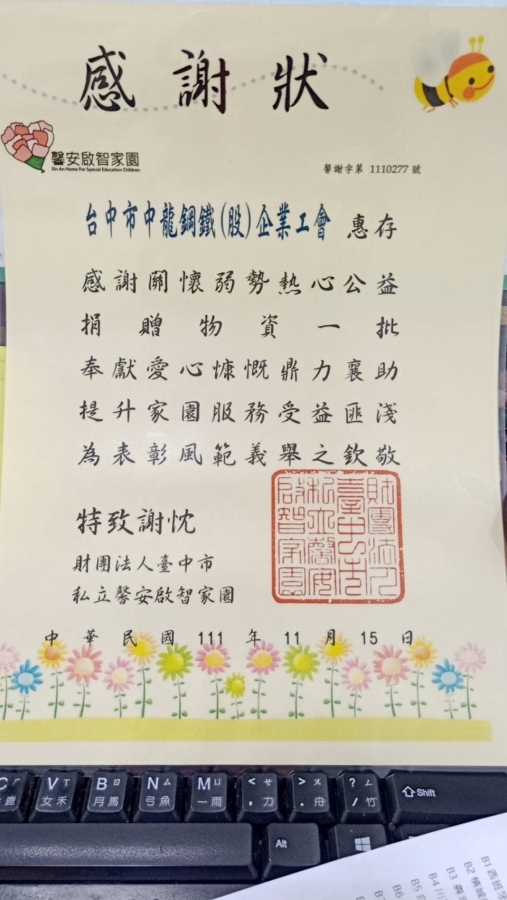 感謝狀
馨安啟智家園
Yin An Home For Special Education Children
馨謝字第 1110277 號
台中市中龍鋼鐵(股)企業工會 惠存
感謝關懷弱勢熱心公益
捐贈物資一批
奉獻愛心慷慨鼎力襄助
提升家園服務受益匪淺
為表彰風範義舉之欽敬
特致謝忱
財團法人臺中市
私立馨安啟智家園
財團法人臺中市私立馨安啟智家園
中華民國 111 年 11 月 15 日
C V ㄒ B ㄖ N ㄙ M ㄩ < ㄝ > ㄡ ? ㄥ Shift
女 禾 月 馬 弓 魚 一 雨 , 力 . 舟 / 竹
Alt
B1 西班牙
B2
B3
B4
B5
B6